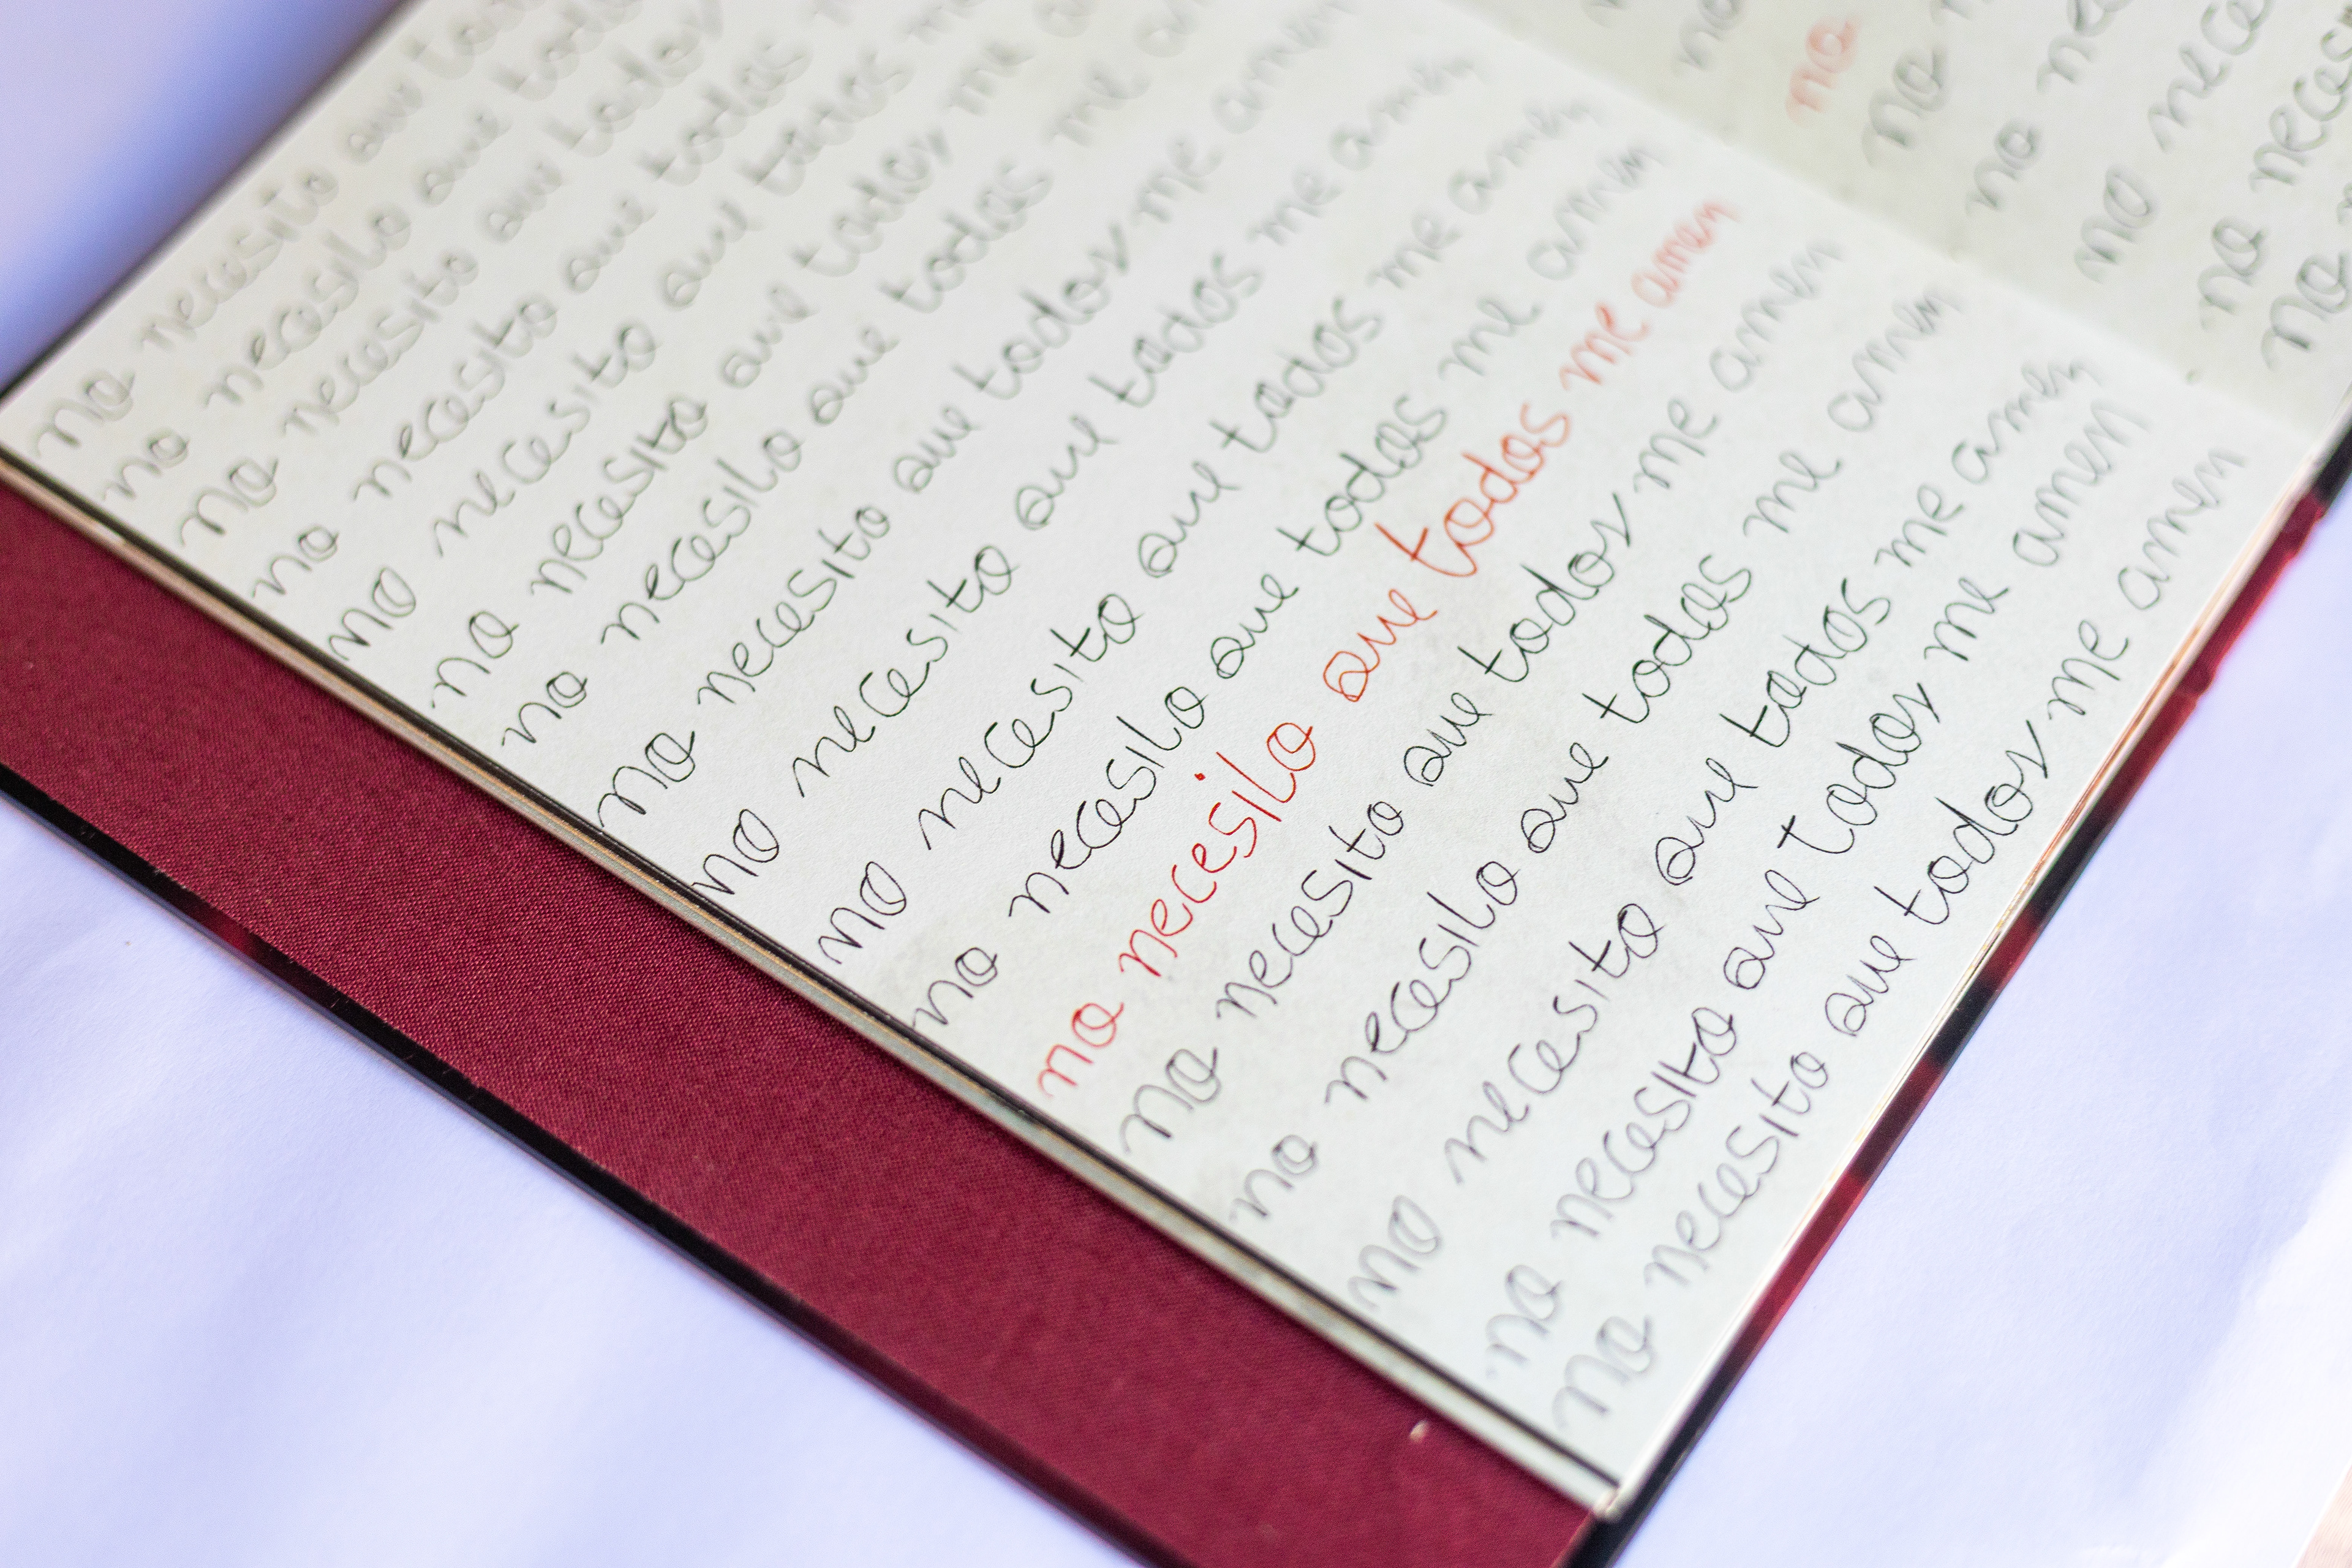 no necesito que
no necesito que
no necesito que todos
no necesito que todos
no necesito que todos me
no necesito que todos me
no necesito que todos me
no necesito que todos me amen
no necesito que todos me amen
no necesito que todos me amen
no necesito que todos me amen
no necesito que todos me amen
no necesito que todos me amen
no necesito que todos me amen
no necesito que todos me amen
no necesito que todos me amen
no necesito que todos me amen
no
no
no
no
no
no
no